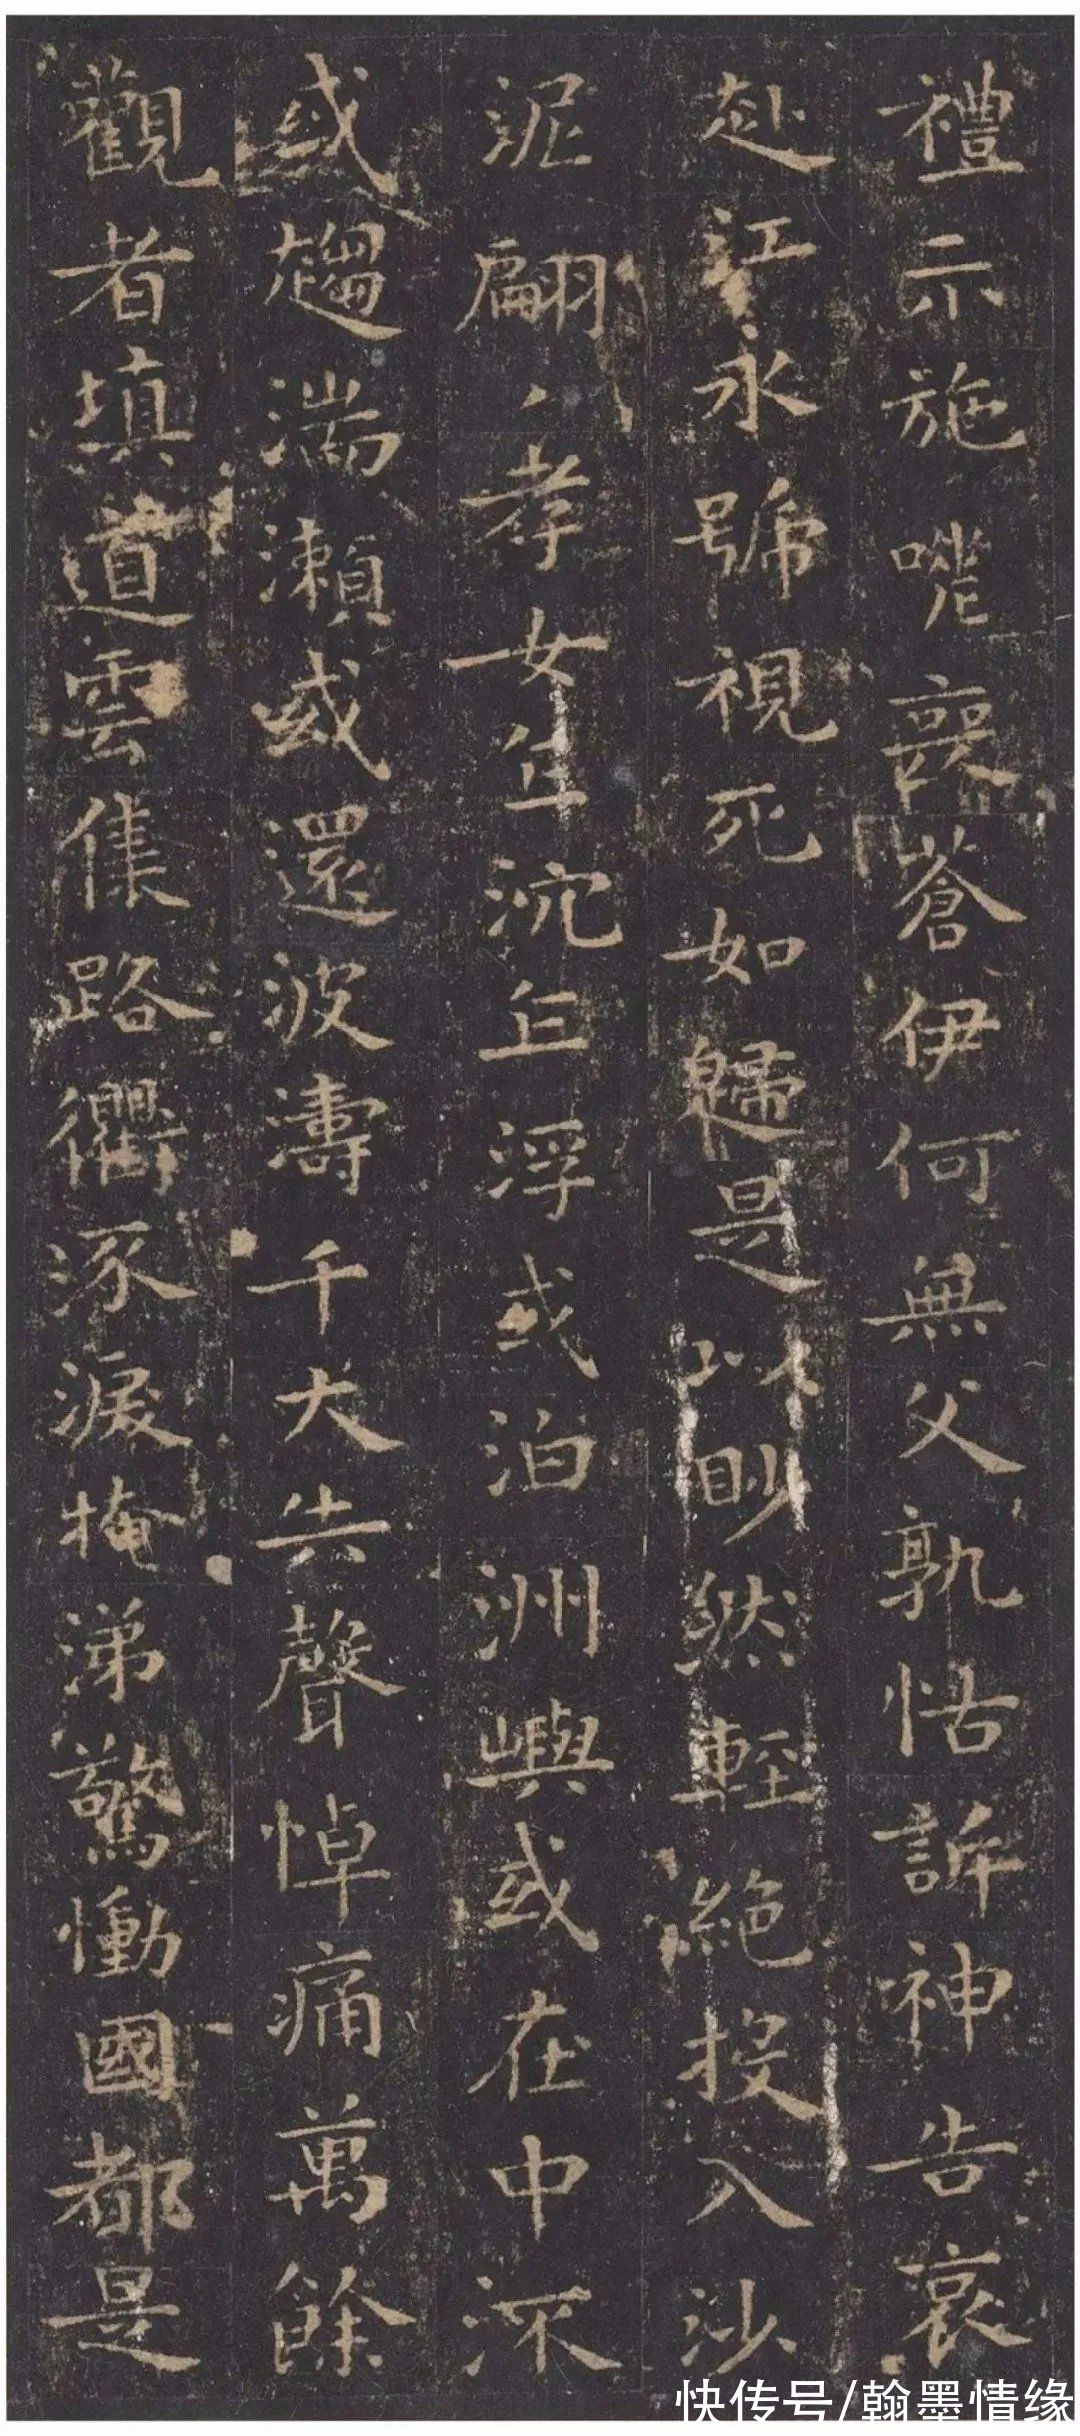 禮示施嗟喪蒼伊何無父孰怙訴神告哀
赴江永號視死如歸是以眇然輕絕投入沙
泥翩〻孝女乍沉乍浮或泊洲嶼或在中流
或趨湍瀨或還波濤千夫失聲悼痛萬餘
觀者填道雲集路衢泳淚掩涕驚慟國都是
快传号/翰墨情缘